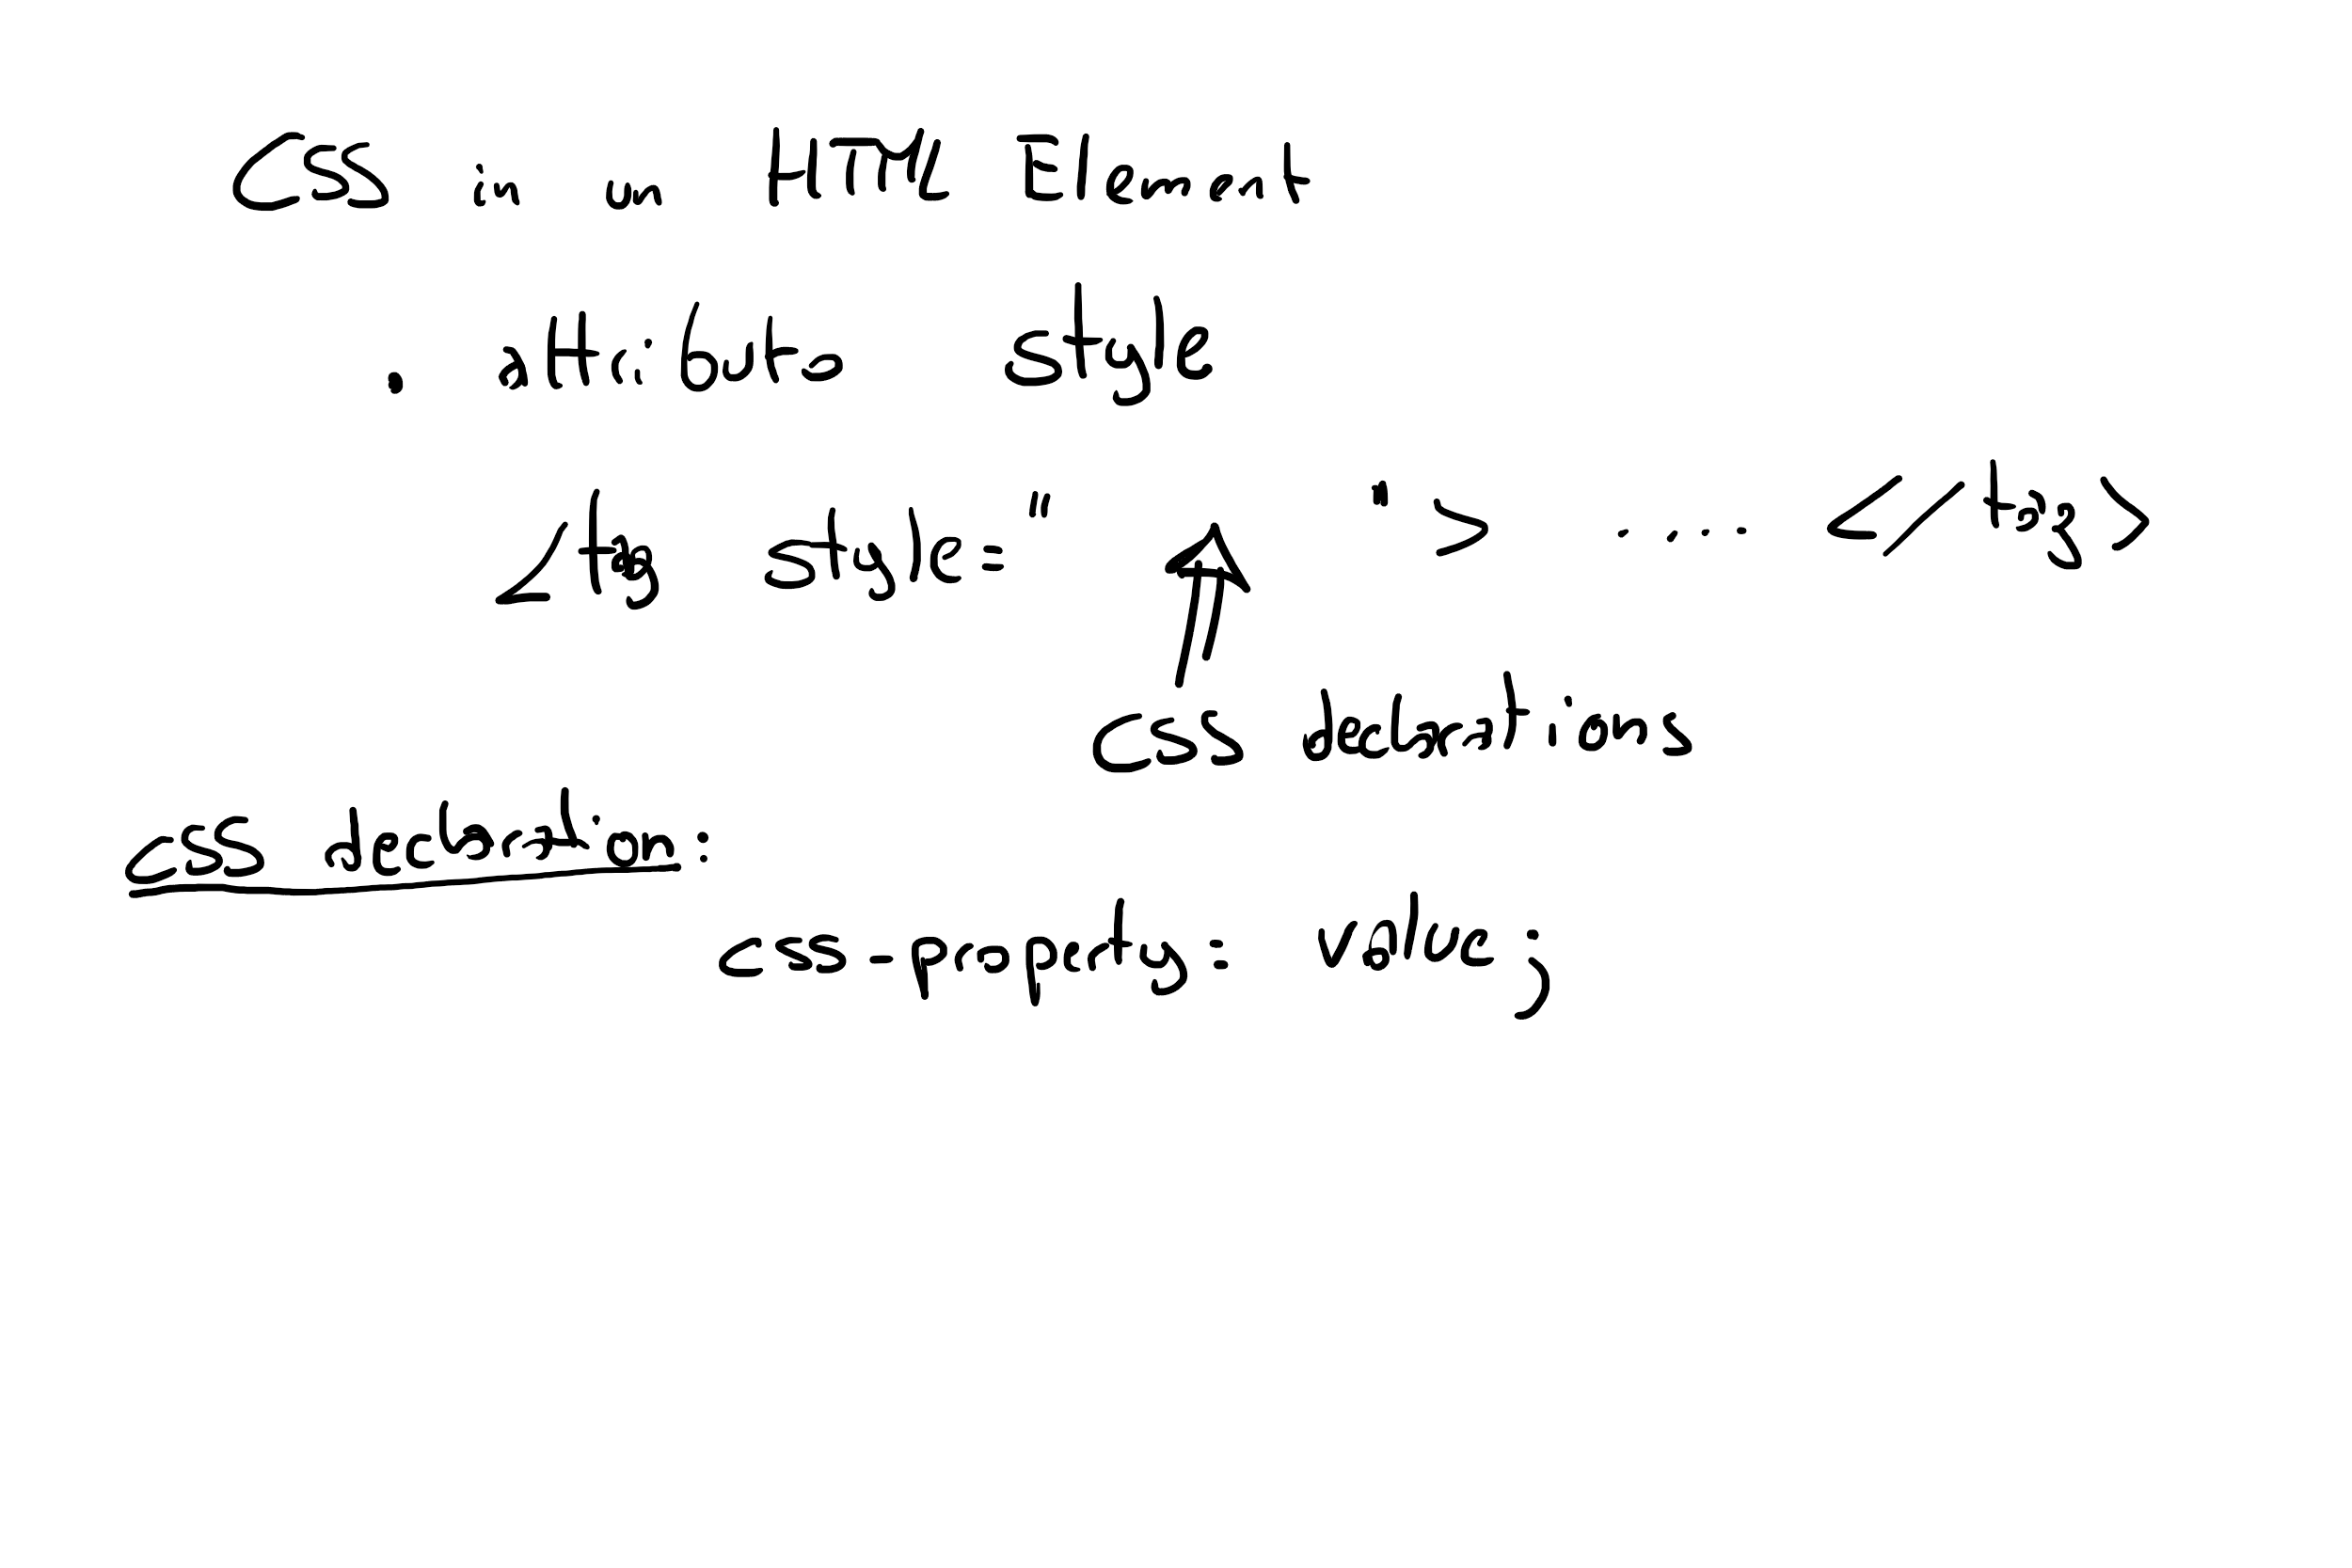 CSS in un HTML Element
• attributo style
<tag style=" "> .... </tag>
CSS declarations
CSS declaration:
css-property: value;